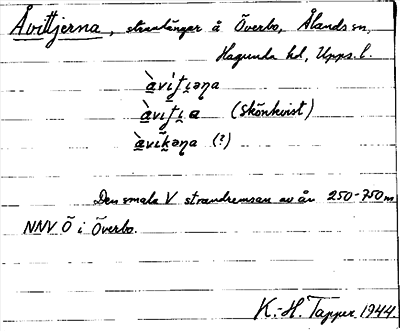 Åvittjerna, strandängar å Överbo, Ålands sn,
Hagunda hd, Upps. l.
àvit̯i̯əṇa
àvit̯i̯a (Skönkvist)
àvik̯əṇa (?)
Den smala V strandremsan av ån 250-750 m
NNV Ö i Överbo.
K.-H. Tapper 1944.